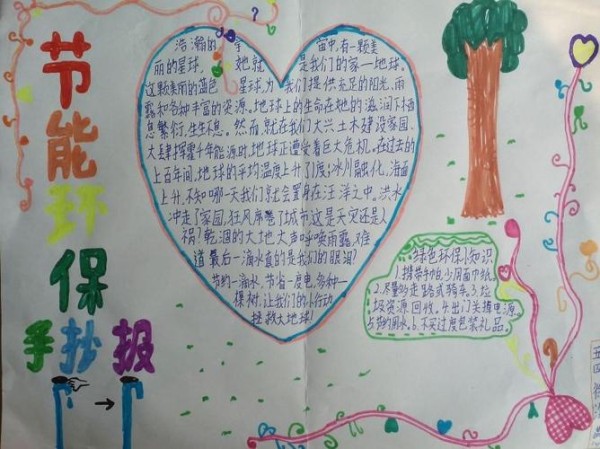 节能环保
手抄报
浩瀚的宇宙中,有一颗美
丽的星球,她就是我们的家—地球。
这颗美丽的蓝色星球,为我们提供充足的阳光,雨
露和各种丰富的资源。地球上的生命在她的滋润下栖
息繁衍,生生不息。然而,就在我们大兴土木建设家园,
大肆挥霍千年能源时,地球正遭受着巨大危机。在过去的
上百年间,地球的平均温度上升了1度;冰川融化,海面
上升,不知哪一天我们就会置身在汪洋之中。洪水
冲走了家园,狂风席卷了城市这是天灾还是人
祸?乾涸的大地大声呼唤雨露,难
道最后一滴水真的是我们的眼泪?
节约一滴水,节省一度电,多种一
棵树,让我们的小行动,
拯救大地球!
绿色环保小知识
1.携带手帕,少用面巾纸
2.尽量多走路或骑车。3.垃
圾资源回收。4.出门关掉电源
6.不买过度包装礼品。
五四